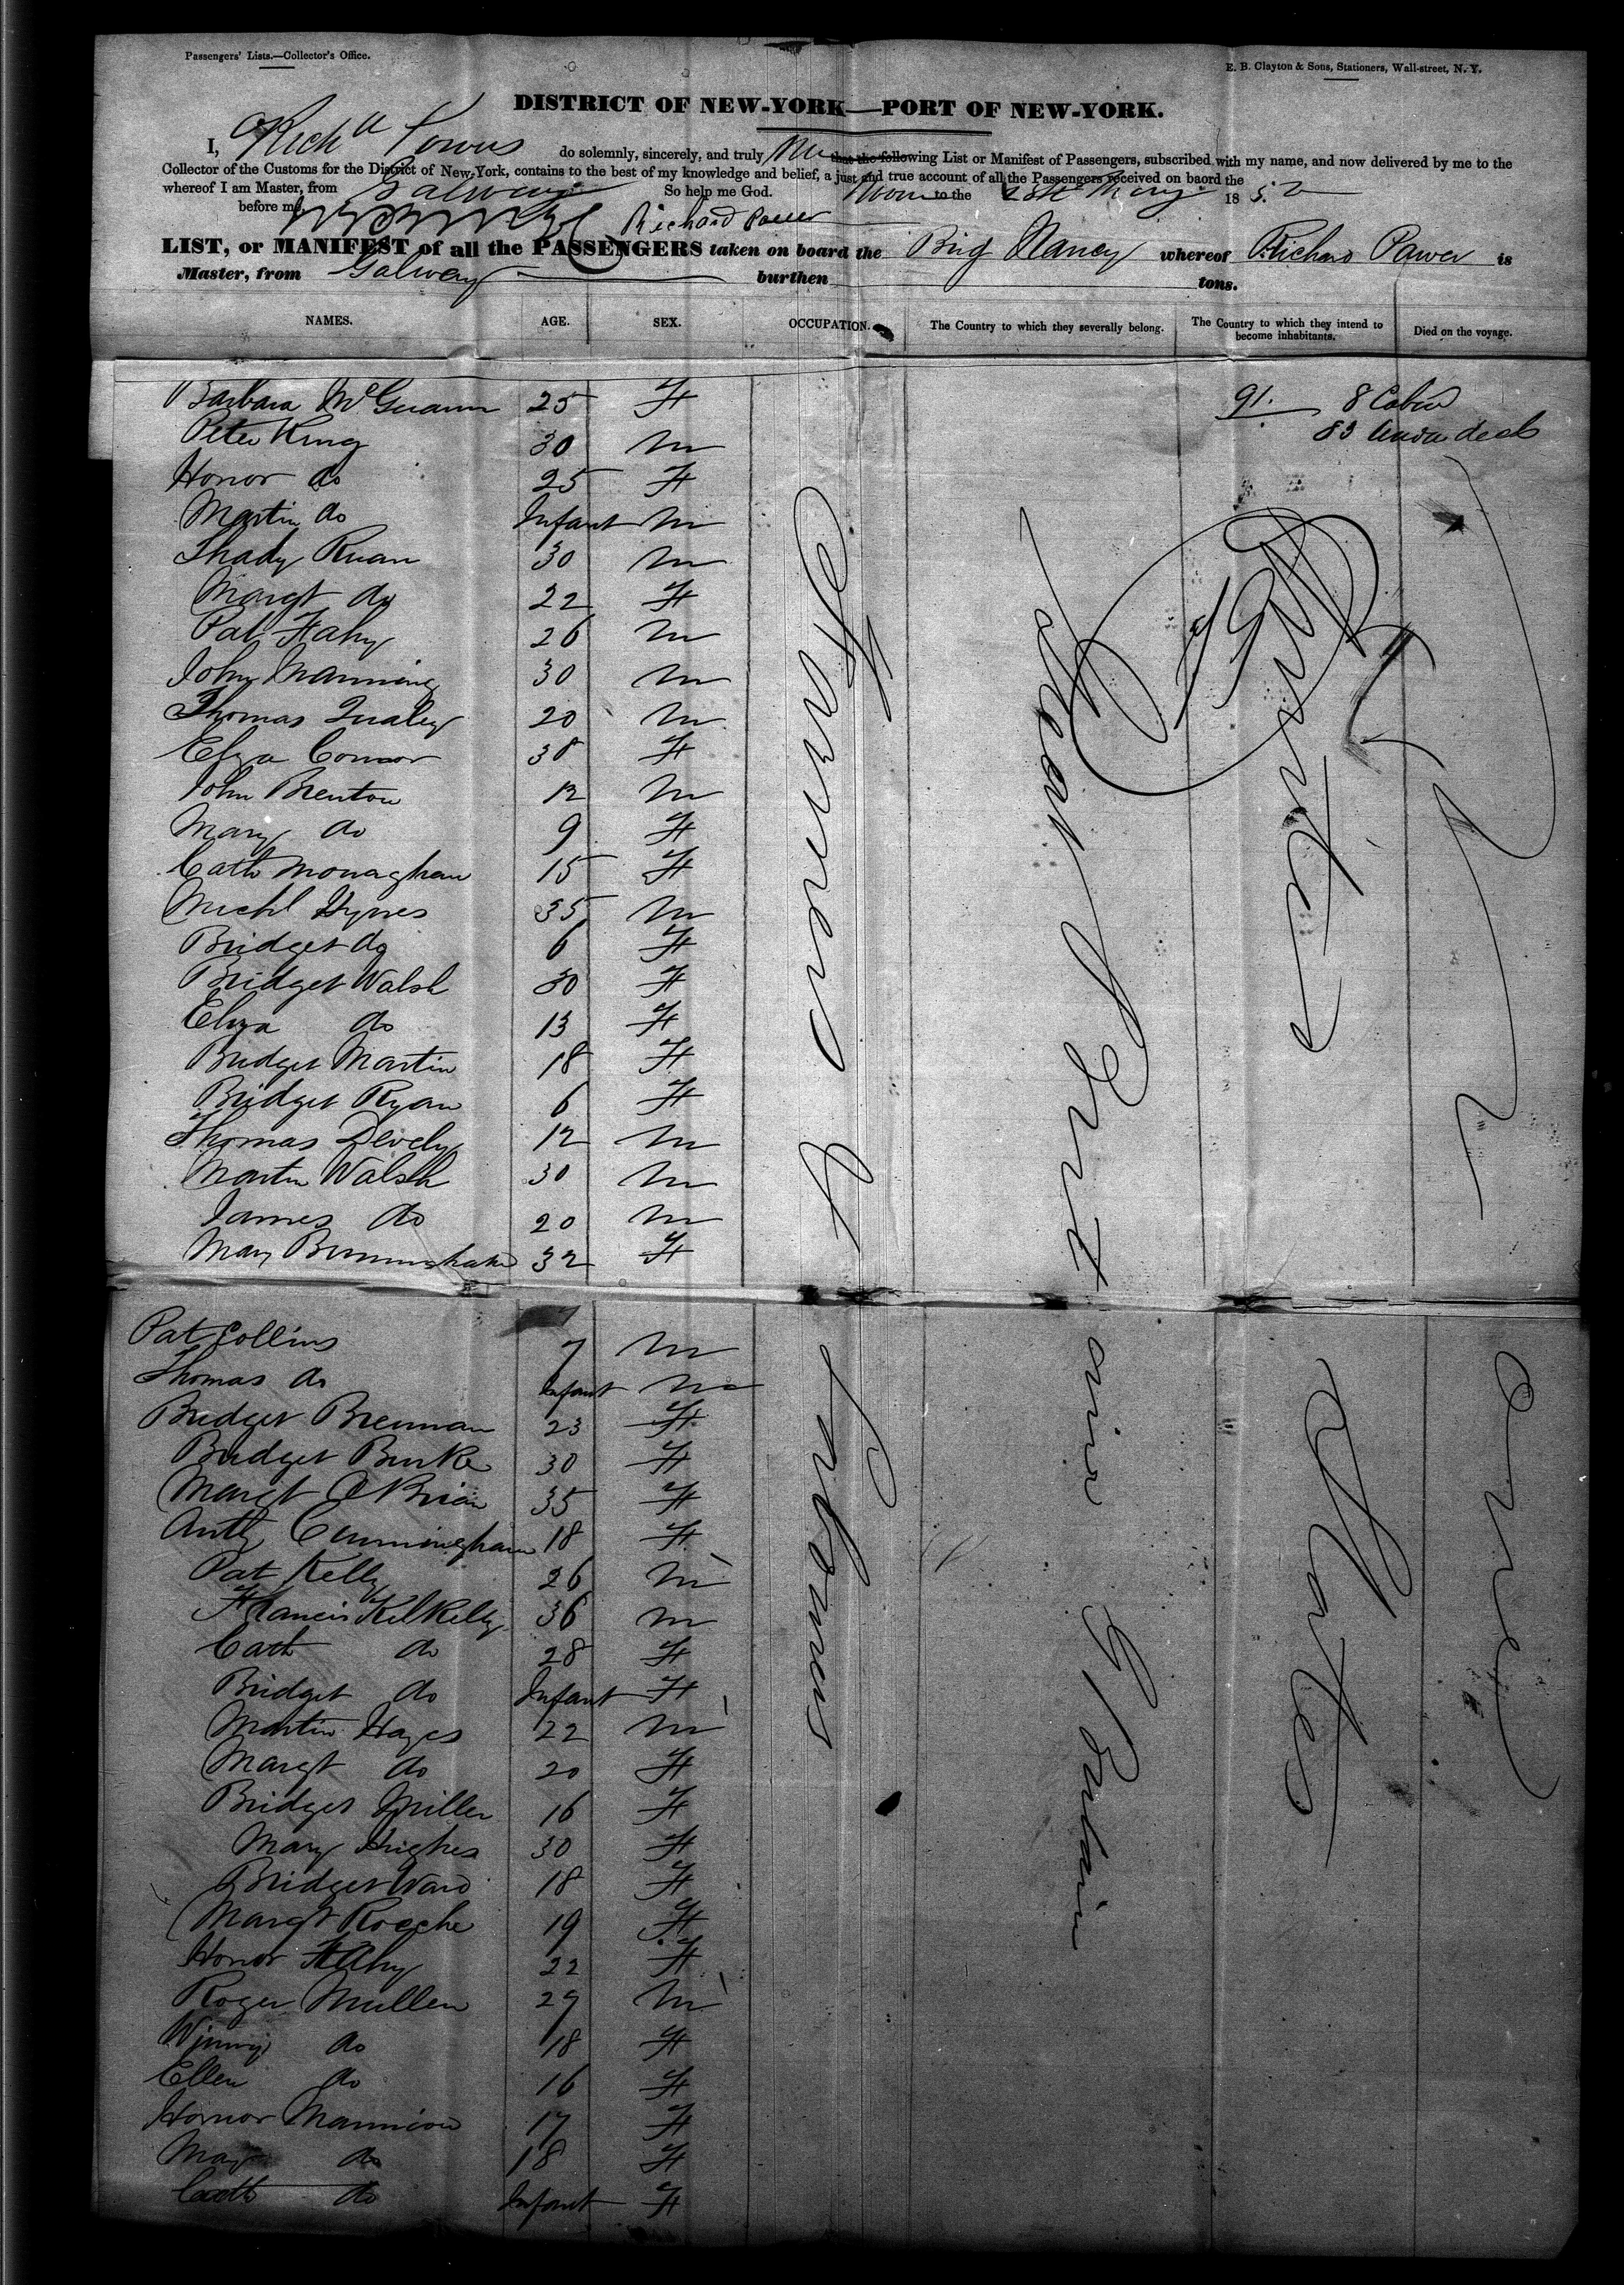 Passengers' Lists.—Collector's Office.
E. B. Clayton & Sons, Stationers, Wall-street, N. Y.
DISTRICT OF NEW-YORK—PORT OF NEW-YORK.
I, Richd Power do solemnly, sincerely, and truly that the following List or Manifest of Passengers, subscribed with my name, and now delivered by me to the
Collector of the Customs for the District of New-York, contains to the best of my knowledge and belief, a just and true account of all the Passengers received on baord the
whereof I am Master, from Galway So help me God. to the 25th May 1852
before me, Richard Power
LIST, or MANIFEST of all the PASSENGERS taken on board the Brig Nancy whereof Richard Power is
Master, from Galway burthen tons.
NAMES. AGE. SEX. OCCUPATION. The Country to which they severally belong. The Country to which they intend to become inhabitants. Died on the voyage.
91. 8 Cabin
83 under deck
Barbara McGuann 25 F
Peter King 30 M
Honor do 25 F
Martin do Infant M
Thady Ruan 30 M
Margt do 22 F
Pat Fahy 26 M
John Manning 30 M
Thomas Qualey 20 M
Eliza Connor 38 F
John Brenton 12 M
Mary do 9 F
Cath Monaghan 15 F
Michl Hynes 35 M
Bridget do 6 F
Bridget Walsh 30 F
Eliza do 13 F
Bridget Martin 18 F
Bridget Ryan 6 F
Thomas Devely 12 M
Martin Walsh 30 M
James do 20 M
Mary Birmingham 32 F
Pat Collins 7 M
Thomas do Infant M
Bridget Brennan 23 F
Bridget Burke 30 F
Margt O Brian 35 F
Anth Cunningham 18 F
Pat Kelly 26 M
Francis Kilkelly 36 M
Cath do 28 F
Bridget do Infant F
Martin Hayes 22 M
Margt do 20 F
Bridget Miller 16 F
Mary Hughes 30 F
Bridget Ward 18 F
Margt Roache 19 F
Honor Fahy 22 F
Roger Mullen 29 M
Winny do 18 F
Ellen do 16 F
Honnor Mannion 17 F
May do 18 F
Cath do Infant F
Farmers & Labourers
Great Britain
United States
None